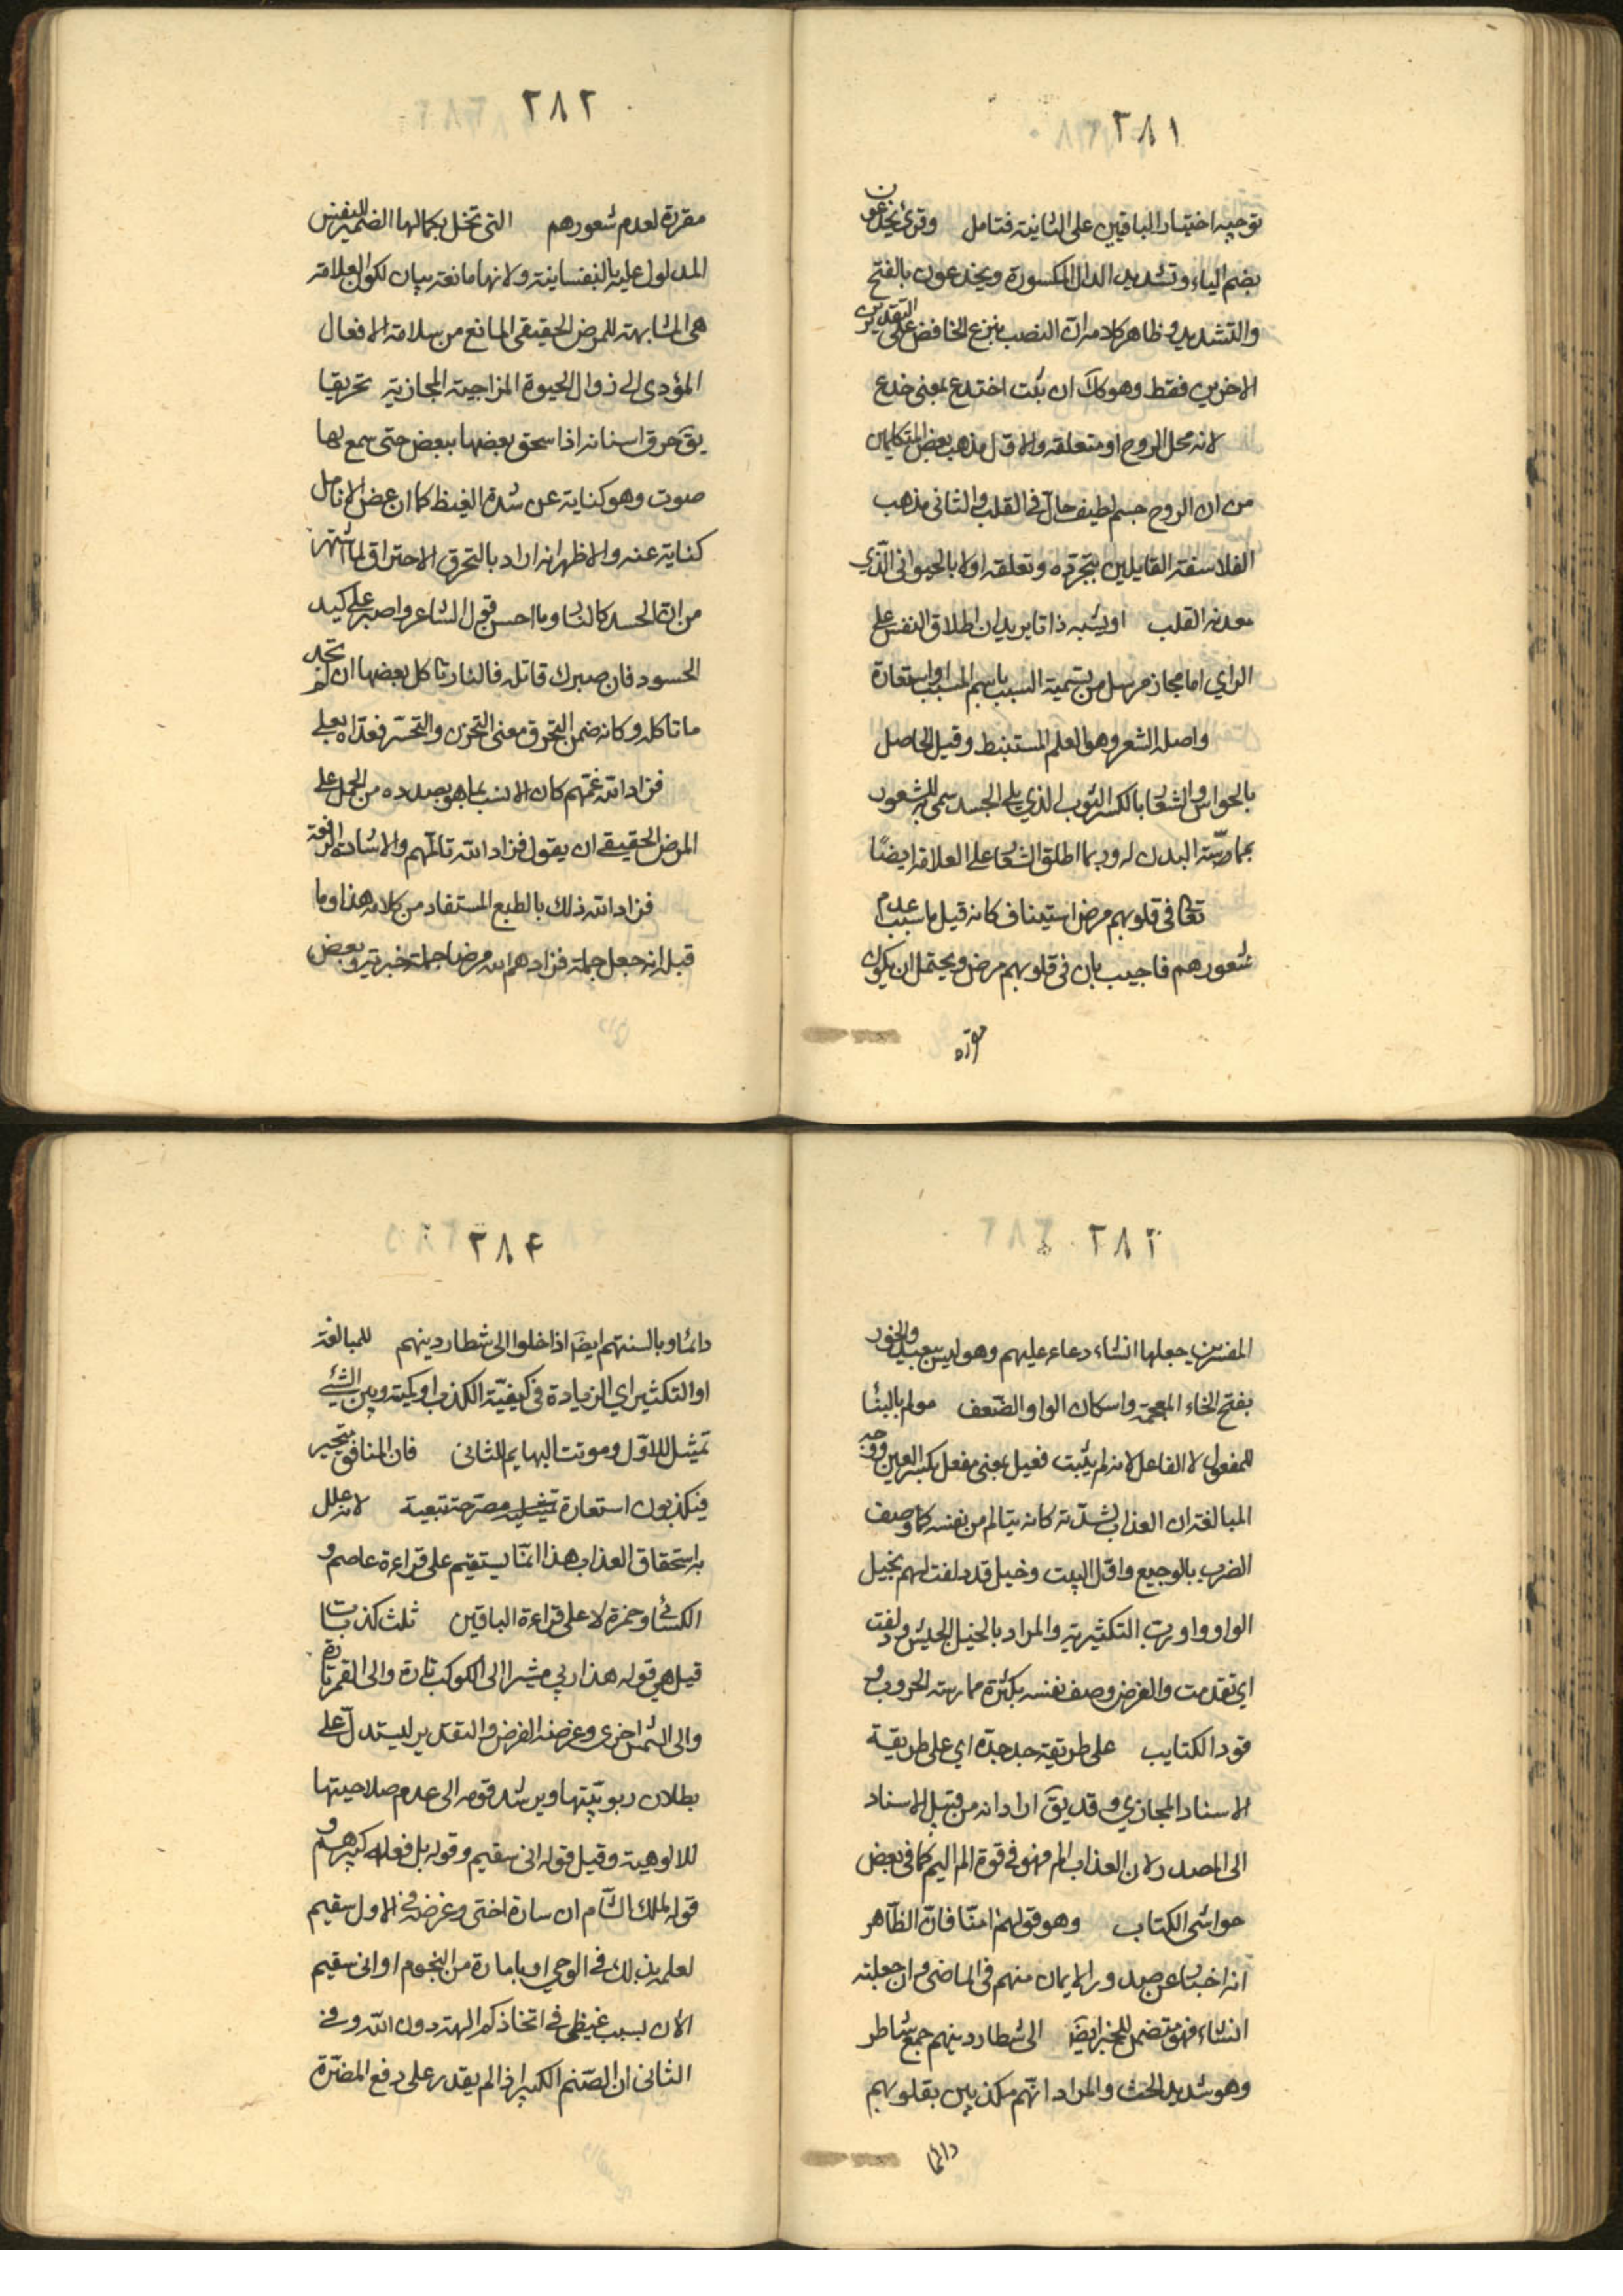 ٢٨١
توجيه اختيار الباقين على الثانية فتامل وقرئ يخدعون
بضم الياء وتشديد الدال المكسورة ويخدعون بالفتح
والتشديد وظاهر كلامه ان النصب بنزع الخافض على التقديرين
الاخيرين فقط وهو كك ان ثبت اختدع بمعنى خدع
لانه محل الروح او متعلقه والاول مذهب بعض المتكلمين
من ان الروح جسم لطيف حال في القلب والثانى مذهب
الفلاسفة القايلين بتجرده وتعلقه اولا بالحيوانى الذي
معدنه القلب او يشبه ذاتا يريد ان اطلاق النفس على
الراي اما مجاز مرسل من تسمية السبب باسم المسبب او استعارة
واصله الشعر وهو العلم المستنبط وقيل الحاصل
بالحواس والشعار بالكسر الثوب الذي يلى الجسد سمى به للشعور
بمماسّة البدن له وربما اطلق الشعار على العلاقة ايضًا
تعالى فى قلوبهم مرض استيناف كانه قيل ما سبب عدم
شعورهم فاجيب بان فى قلوبهم مرض ويحتمل ان يكون
مقررة
٢٨٢
مقررة لعدم شعورهم التى تخل بكمالها الضمير للنفس
المدلول عليه بالنفسانية ولانها مانعة بيان لكون العلاقة
هى المشابهة للمرض الحقيقى المانع من سلامة الافعال
المؤدى الى زوال الحيوة المزاجية المجازية تحريقا
يق حرق اسنانه اذا سحق بعضها ببعض حتى سمع لها
صوت وهو كناية عن شدة الغيظ كما ان عض الانامل
كناية عنه والاظهر انه اراد بالتحرق الاحتراق لما اشتهر
من ان الحسد كالنار وما احسن قول الشاعر واصبر على كيد
الحسود فان صبرك قاتله فالنار تاكل بعضها ان لم تجد
ما تاكله وكانه ضمن التحرق معنى التحزن والتحسّر فعداه بعلى
فزاد الله غمّهم كان الانسب بما هو بصدده من الحمل على
المرض الحقيقى ان يقول فزاد الله تالّمهم والاشارة الواقعة
فزاد الله ذلك بالطبع المستفاد من كلامه هذا وما
قبله انه جعل جملة فزادهم الله مرضا جملة خبرية وبعض
٢٨٣
المفسرين جعلها انشاء دعاء عليهم وهو ليس ببعيد والخور
بفتح الخاء المعجمة واسكان الواو الضّعف مولم بالبنا
للمفعول لا الفاعل لانه لم يثبت فعيل بمعنى مفعل بكسر العين ووجه
المبالغة ان العذاب لشدّته كانه يتالم من نفسه كما وصف
الضرب بالوجيع واوّل البيت وخيل قد دلفت لهم بخيل
الواو واو رب التكثيرية والمراد بالخيل الجيش ودلفت
اي تقدمت والغرض وصف نفسه بكثرة ممارسته الحروب و
قود الكتايب على طريقة جد جدّه اي على طريقة
الاسناد المجازي وقد يق اراد انه من قبيل الاسناد
الى المصدر لان العذاب الم فهو فى قوة الم اليم كما فى بعض
حواشى الكتاب وهو قولهم امنّا فانّ الظّاهر
انه اخبار عن صدور الايمان منهم فى الماضى وان جعلته
انشاء فهو متضمن للخبر ايضَ الى شطار دينهم جمع شاطر
وهو شديد الخبث والمراد انّهم مكذبين بقلوبهم
دائما
٢٨٤
دائما وبالسنتهم ايضَ اذا خلوا الى شطار دينهم للمبالغة
او التكثير اي الزيادة فى كيفيّة الكذب او كميّته وبين الشئ
تمثيل للاوّل وموتت البهايم للثانى فان المنافق متحير
فيكذبون استعارة تمثيلية مصرحة تبعية لانه علل
به استحقاق العذاب هذا انّما يستقيم على قراءة عاصم و
الكسائى وحمزة لا على قراءة الباقين ثلث كذبات
قيل هى قوله هذا ربي مشيرا الى الكوكب تارة والى القمر تارة
والى الشمس اخرى وغرضه الفرض والتقدير ليستدلّ على
بطلان ربوبيّتها ويرشد قومه الى عدم صلاحيتها
للالوهية وقيل قوله انى سقيم وقوله بل فعله كبيرهم و
قوله لملك الشّام ان سارة اختى وغرضه فى الاول سقيم
لعلمه بذلك فى الوحى او بامارة من النجوم او انى سقيم
الان بسبب غيظى فى اتخاذكم الهة دون الله وفى
الثانى ان الصّنم الكبير اذا لم يقدر على دفع المضرّة